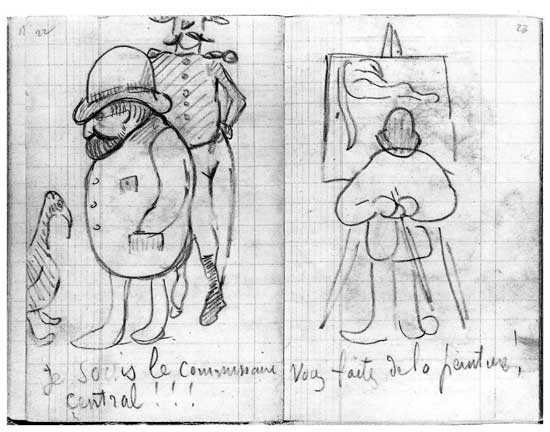 22
23
Je souis le Commissaire
central ! ! !
Vous faites de la peinture !